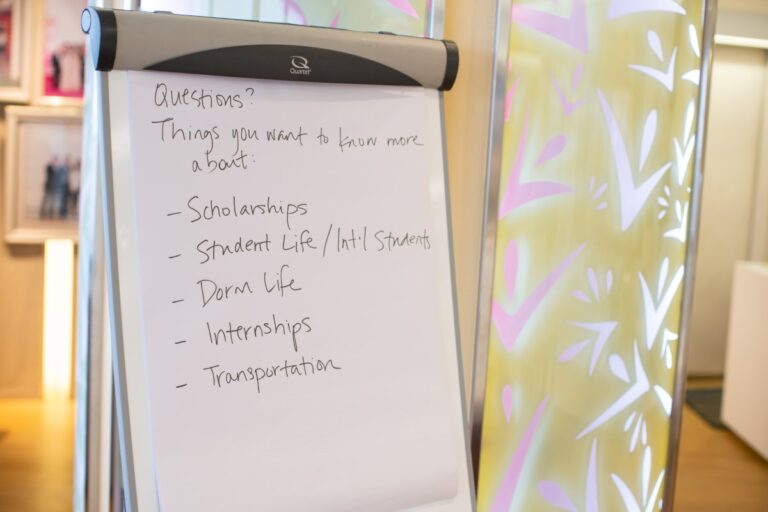 Quartet
Questions?
Things you want to know more
about:
- Scholarships
- Student Life / Int'l Students
- Dorm Life
- Internships
- Transportation